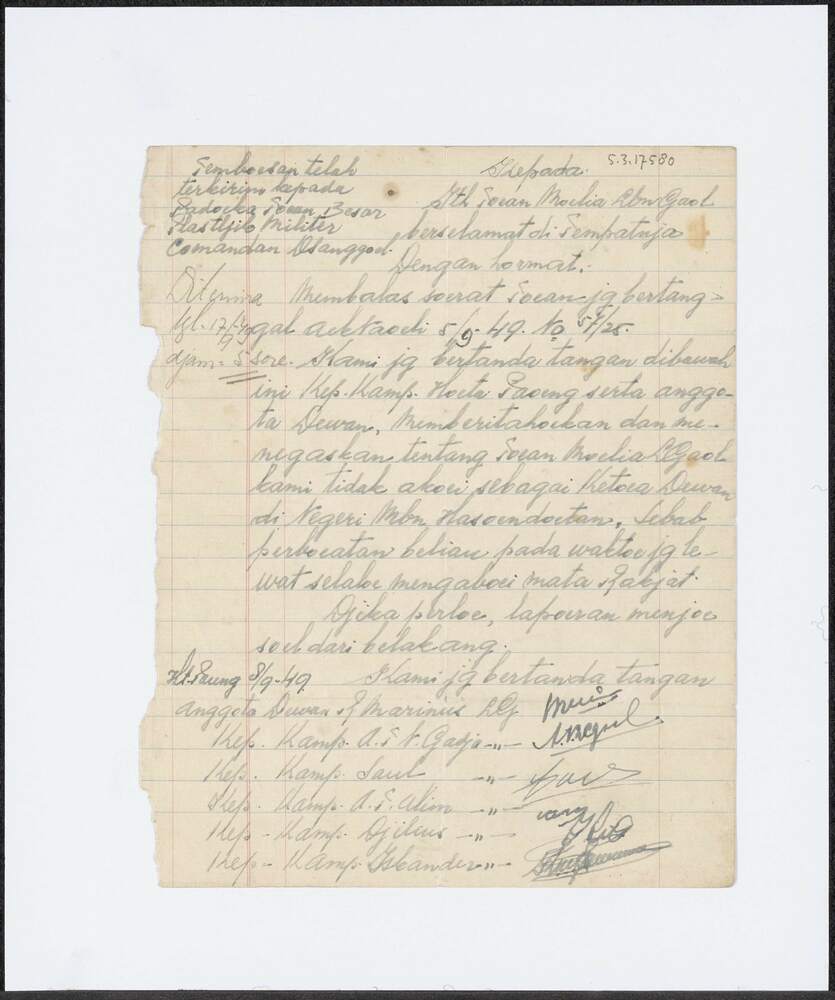 5.3.17580
Temboesan telah
terkirim kepada
Padoeka Toean Besar
Plastijlo Militer
Comandan Dsanggoel.
Kepada.
Jth Toean Moelia Lbn Gaol
berselamat di Tempatnja
Dengan hormat.
Diterima
tgl. 17/9-49
djam: 5 sore.
Membalas soerat Toean jg bertang-
gal Aeknaoeli 5/9-49. No 54/25.
Kami jg bertanda tangan dibawah
ini Kep. Kamp. Hoeta Paoeng serta anggo-
ta Dewan, Memberitahoekan dan me-
negaskan tentang Toean Moelia LGaol
kami tidak akoei sebagai Ketoea Dewan
di Negeri Mbn Hasoendoetan, Sebab
perboeatan beliau pada waktoe jg le-
wat selaloe mengaboei mata Rakjat.
Djika perloe, lapoeran menjoe
soel dari belakang.
Ht. Paung 8/9-49
Kami jg bertanda tangan
anggota Dewan R Marinus LG
Kep. Kamp. A.T.N. Gadja -"-
Kep. Kamp. Saul -"-
Kep. Kamp. A.T. Alim -"-
Kep - Kamp. Djilius -"-
Kep - Kamp. Iskander -"-